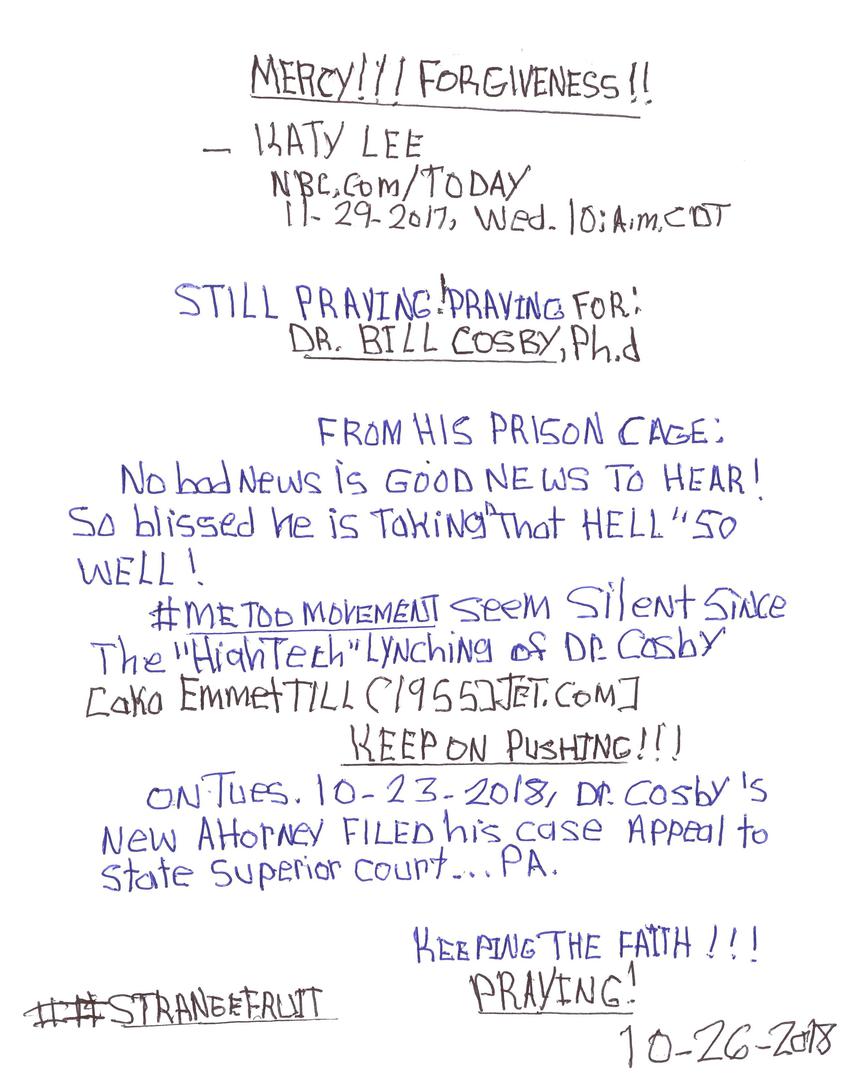 MERCY!!! FORGIVENESS!!
— KATY LEE
NBC.Com/TODAY
11-29-2017, Wed. 10:A.m.CDT
STILL PRAYING! PRAYING FOR:
DR. BILL COSBY, Ph.d
FROM HIS PRISON CAGE:
No bad News is GOOD NEWS TO HEAR!
So blissed he is TaKiNg "That HELL" SO
WELL!
#METOO MOVEMENT SEEM Silent SiNce
The "HighTech" LYNChiNg of DR. Cosby
[aka Emmet TILL (1955] JET.COM]
KEEP ON PUSHING!!!
ON Tues. 10-23-2018, DR. Cosby's
New Attorney FILED his case Appeal to
State Superior Court... PA.
KEEPING THE FAITH!!!
PRAYING!
##STRANGEFRUIT
10-26-2018